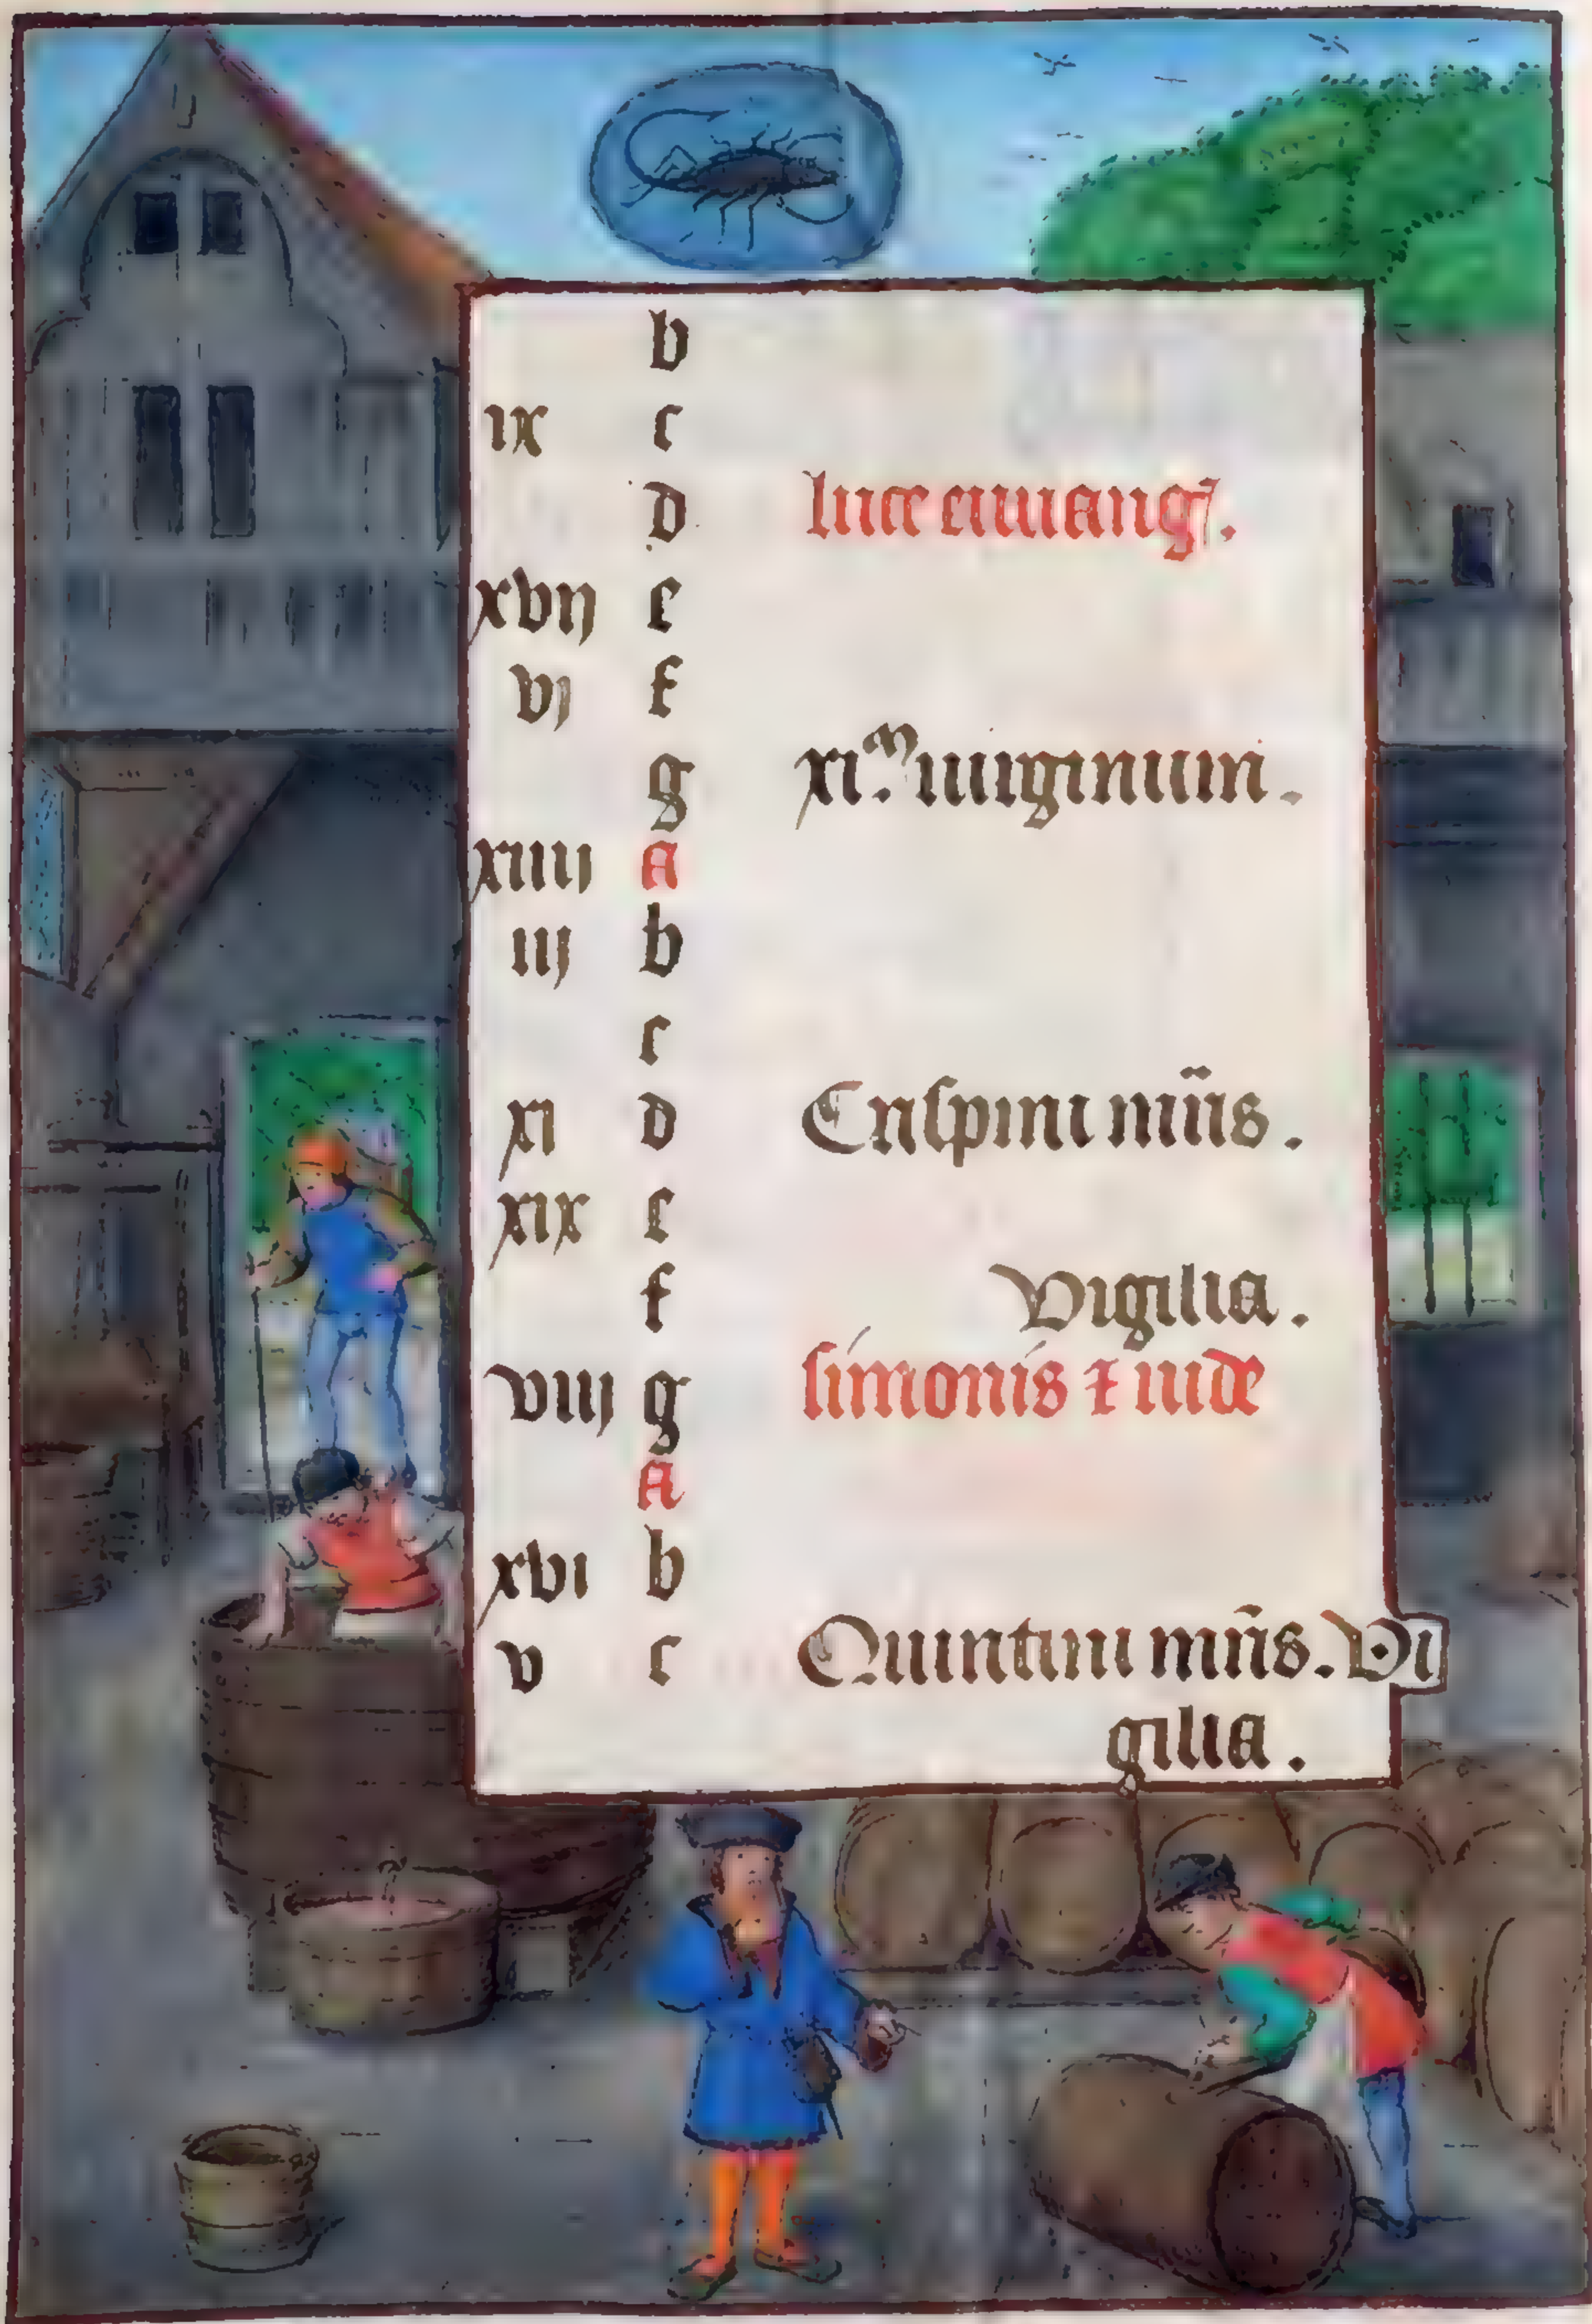 b
ix c
d luce euuang.
xvij e
vj f
g xi.m uirginum.
xiiij a
iij b
c
xi d Crispini mris.
xix e
f Vigilia.
viij g simonis & iude
a
xvi b
v c Quintini mris. Vi
gilia.